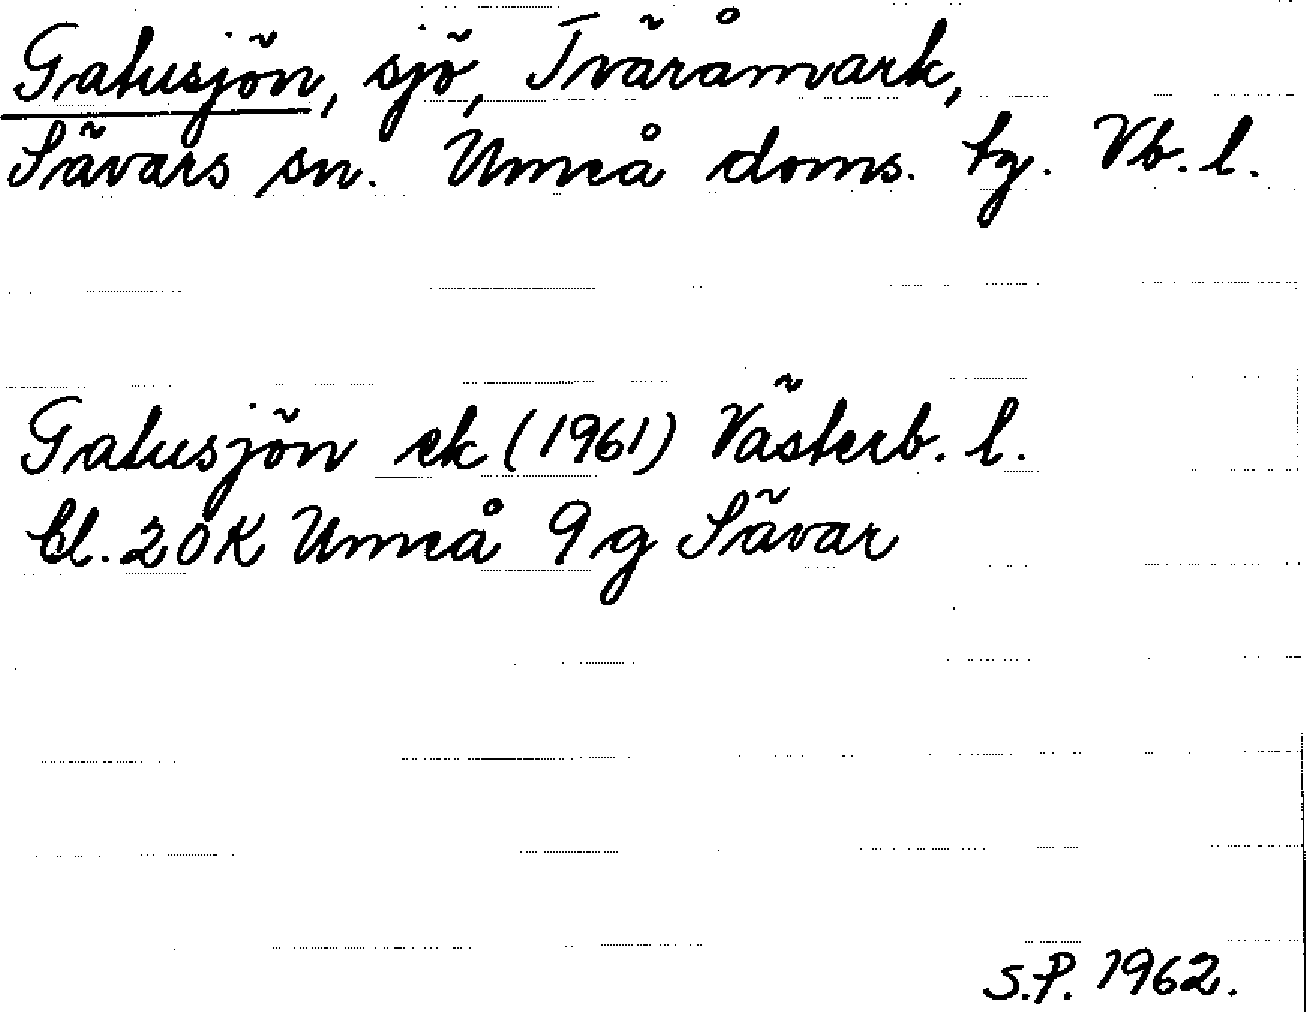 Gatusjön, sjö, Tväråmark,
Sävars sn. Umeå doms. tg. Vb. l.
Gatusjön ek (1961) Västerb. l.
bl. 20K Umeå 9g Sävar
S.P. 1962.